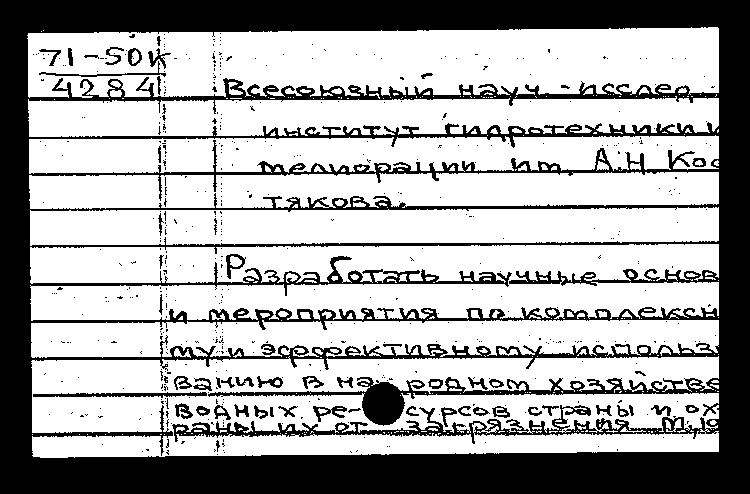 71-50к
4284
Всесоюзный науч.-исслед.
институт гидротехники и
мелиорации им. А.Н Кос
тякова.
Разработать научные основ
и мероприятия по комплексн
му и эффективному использ
ванию в на родном хозяйстве
водных ре- сурсов страны и ох-
раны их от загрязнения М,19